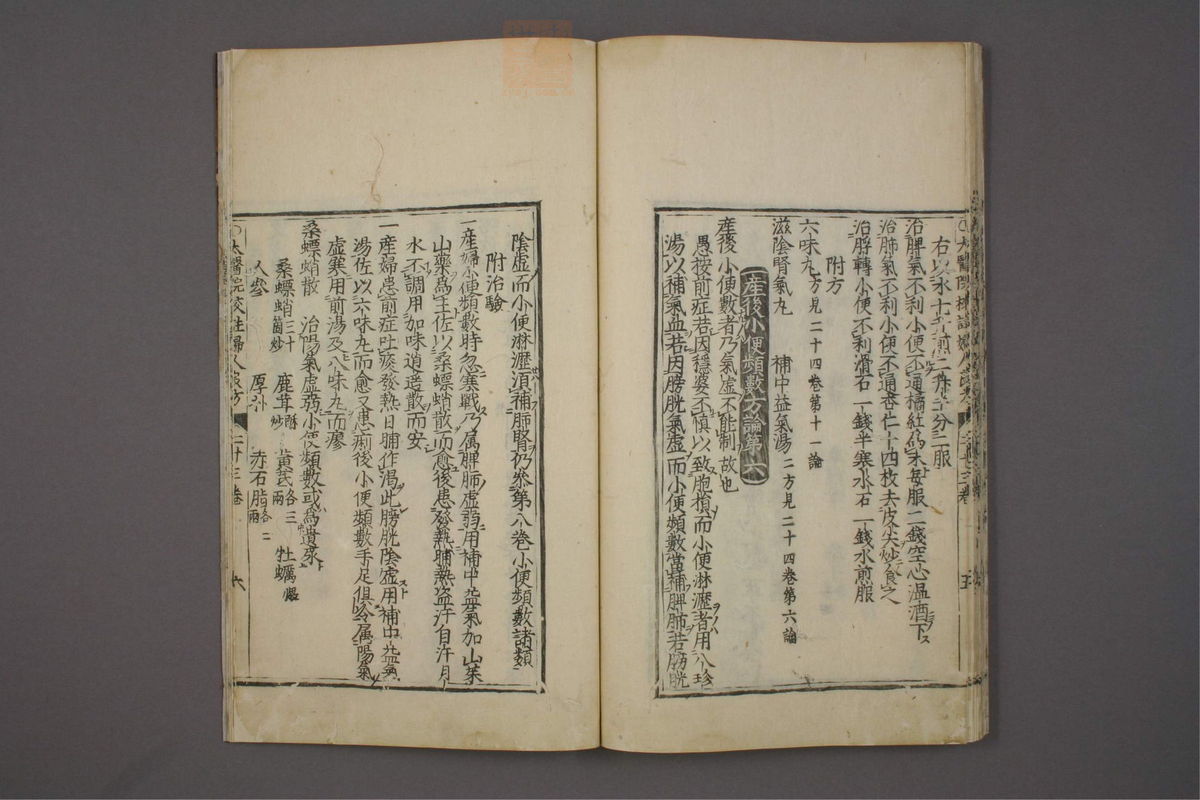 右以水十升煎二升半分三服
治脾氣不利小便不通橘紅爲末每服二錢空心溫酒下
治肺氣不利小便不通杏仁十四枚去皮尖炒食之
治脬轉小便不利滑石一錢半寒水石一錢水煎服
附方
六味丸方見二十四卷第十一論
滋陰腎氣丸 補中益氣湯二方見二十四卷第六論
產後小便頻數方論第六
產後小便數者乃氣虛不能制故也
愚按前症若因穩婆不慎以致胞損而小便淋瀝者用八珍
湯以補氣血若因膀胱氣虛而小便頻數當補脾肺若膀胱
陰虛而小便淋瀝須補肺腎仍叅第八卷小便頻數諸類
附治驗
一產婦小便頻數時忽寒戰乃属脾肺虛弱用補中益氣加山茱
山藥爲主佐以桑螵蛸散而愈後患發熱晡熱盜汗自汗月
水不調用加味逍遥散而安
一產婦患前症吐痰發熱日晡作渴此膀胱陰虛用補中益氣
湯佐以六味丸而愈又患痢後小便頻數手足俱冷属陽氣
虛寒用前湯及八味丸而瘳
桑螵蛸散 治陽氣虛弱小便頻數或爲遺尿
桑螵蛸三十箇炒 鹿茸酥炒 黃芪各三兩 牡蠣煅
人參 厚朴 赤石脂各二兩
太醫院校註婦人良方 二十三卷 六